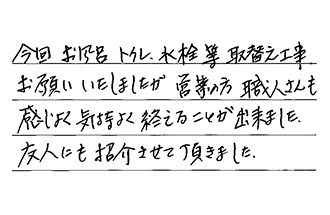 今回 お風呂 トイレ、水栓等 取替え工事
お願い いたしましたが 営業の方 職人さんも
感じよく 気持よく 終えることが出来ました.
友人にも 紹介させて頂きました.